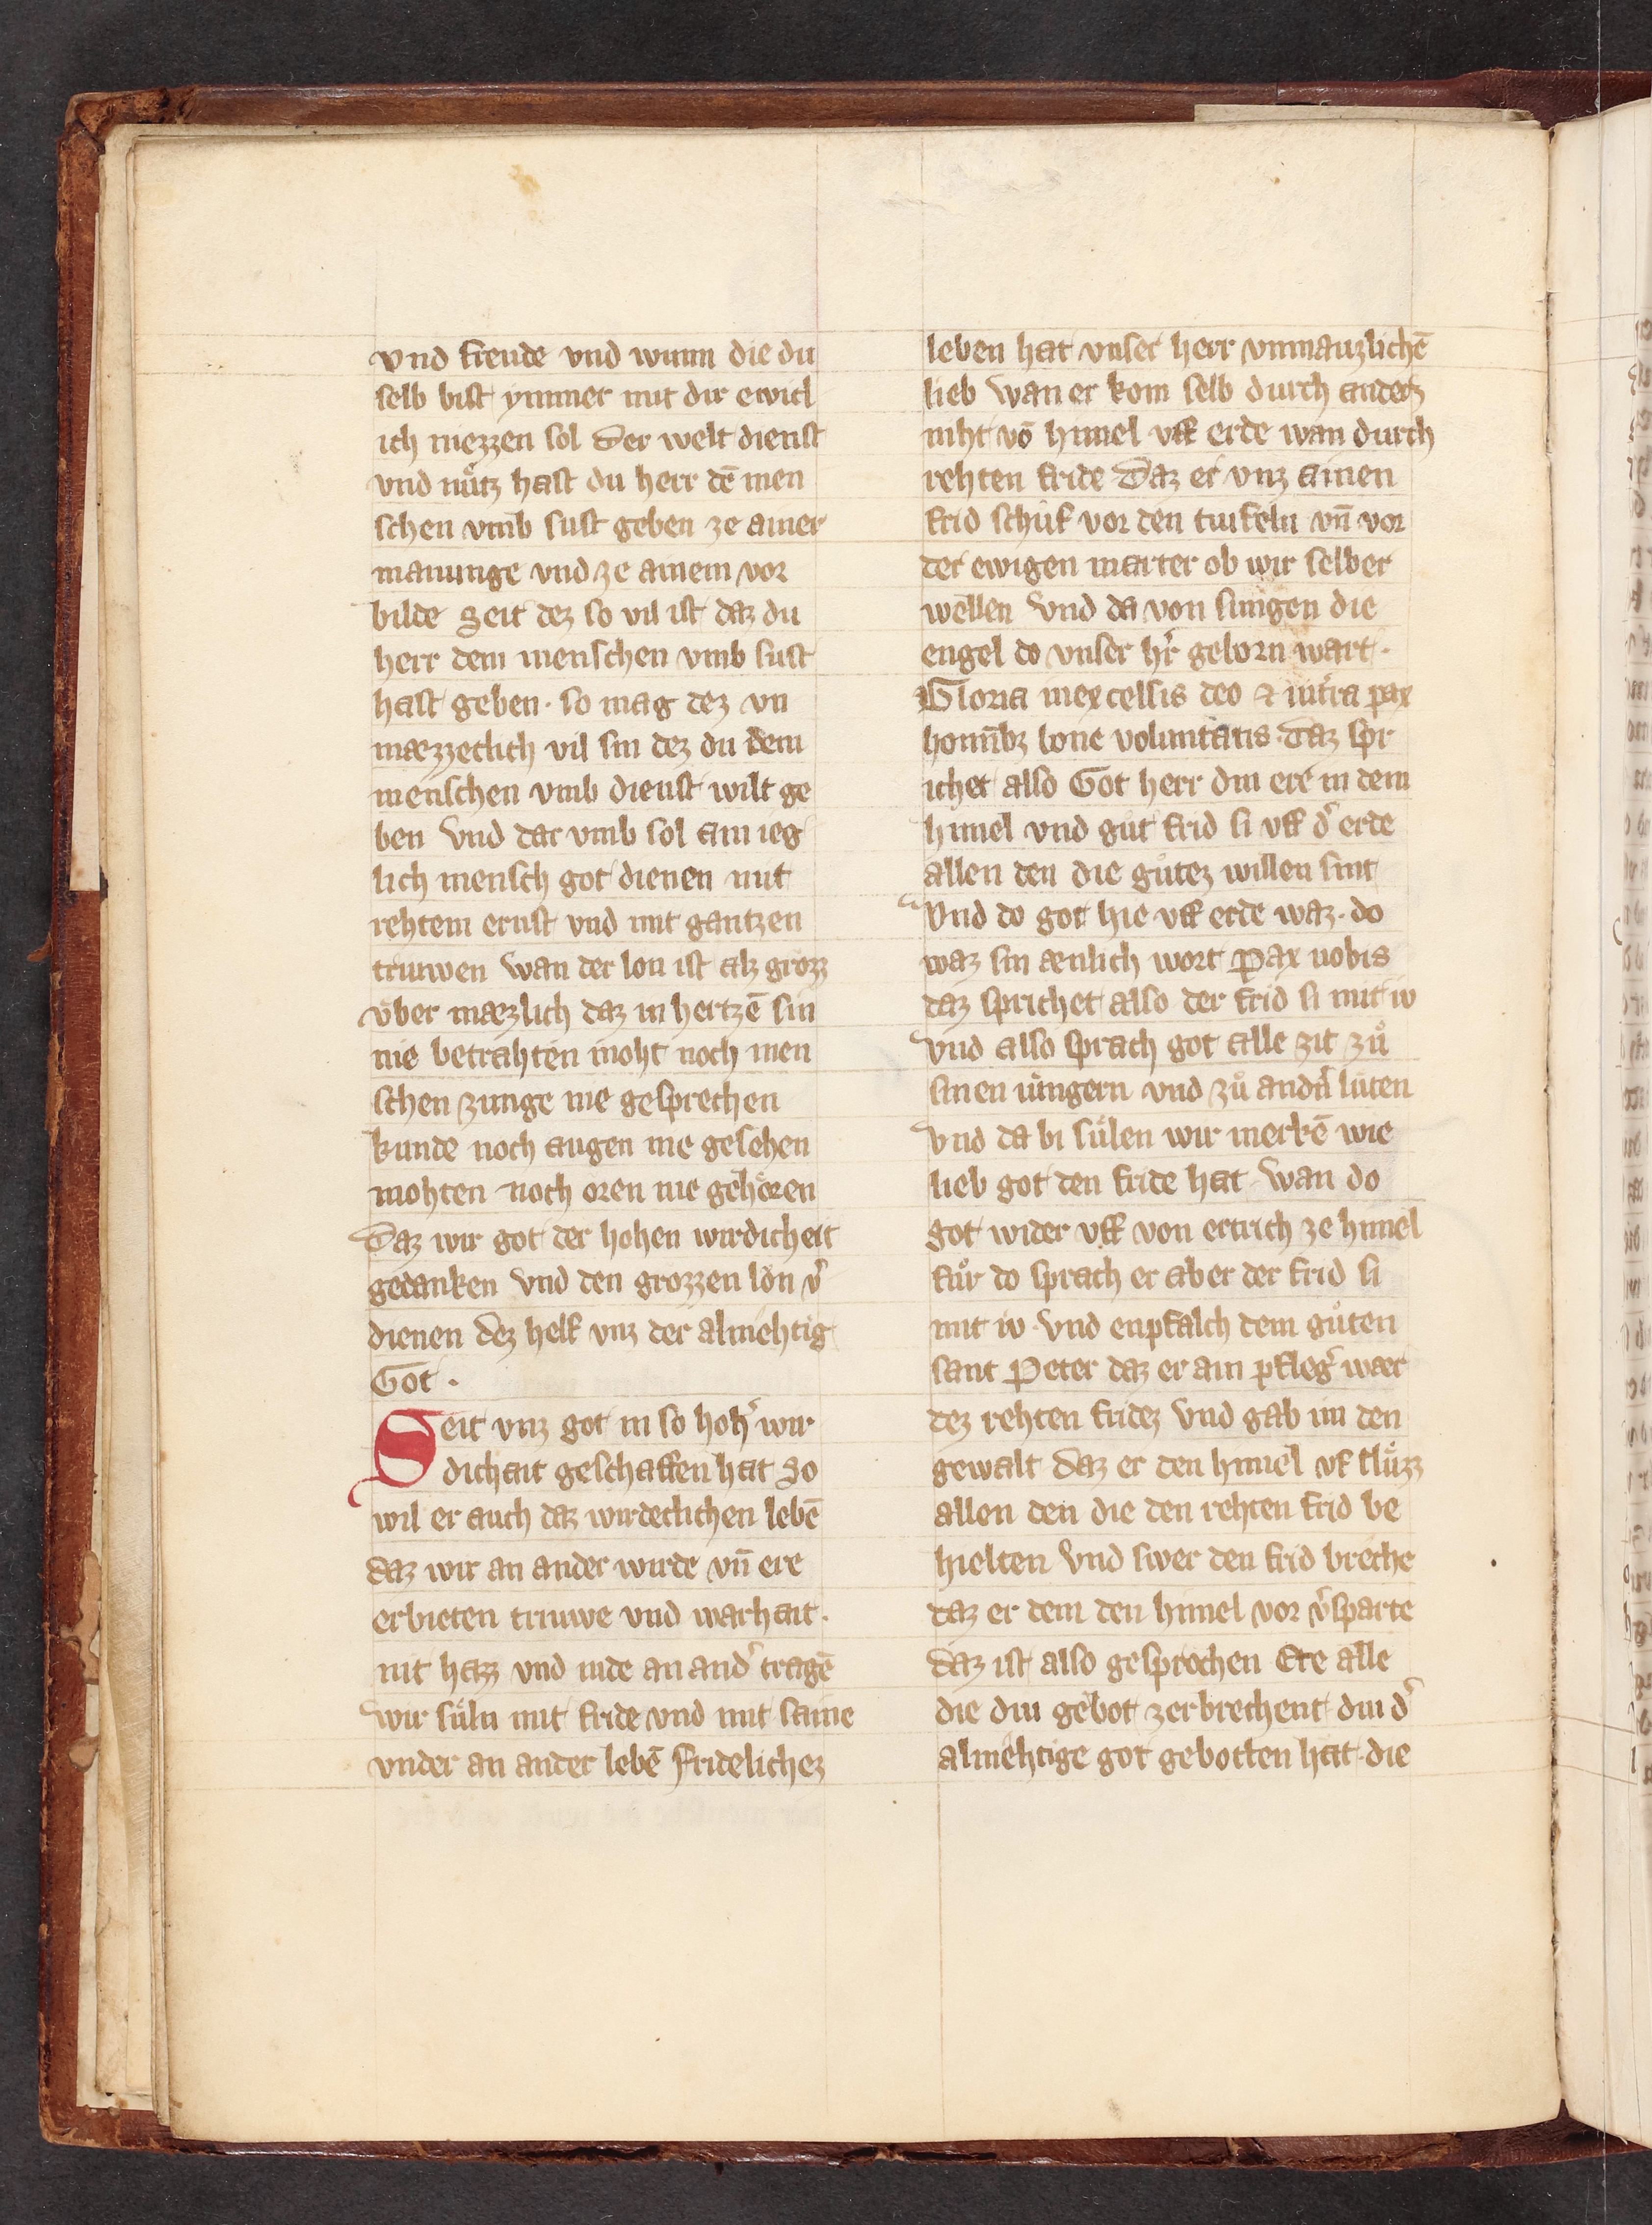 vnd freude vnd wunn die du
selb bist ymmer mit dir ewicl
ich niezzen sol Der welt dienst
vnd nuͤtz hast du herr dē men
schen vmb sust geben ze ainer
manunge vnd ze ainem vor
bilde Seit dez so vil ist daz du
herr dem menschen vmb sust
hast geben · so mag dez vn
mæzzeclich vil sin dez du dem
menschen vmb dienst wilt ge
ben Vnd dar vmb sol ain ieg
lich mensch got dienen mit
rehtem ernst vnd mit gantzen
triuwen wan der lon ist alz grozz
v̈ber mæzlich daz in hertzē sin
nie betrahten moht noch men
schen zunge nie gesprechen
kunde noch augen nie gesehen
mohten noch oren nie gehoͤren
Daz wir got der hohen wirdicheit
gedanken Vnd den grozzen lon v᷑
dienen dez helf vnz der almehtig
Got ·
Seit vnz got in so hoh᷑ wir
dichait geschaffen hat So
wil er auch daz wirdeclichen lebē
daz wir an ander wirde vn̄ ere
erbieten triuwe vnd warhait ·
nit hazz vnd nide an and᷑ tragē
wir suͤln mit fride vnd mit saine
vnder an ander lebē Fridelichez
leben hat vnser herr vnmauzlichē
lieb wan er kom selb durch anderz
niht vō himel vff erde wan durch
rehten fride Daz er vnz ainen
frid schuͤf vor den tiufeln vn̄ vor
der ewigen marter ob wir selber
wellen Vnd da von singen die
engel do vnser hr᷑ geborn wart ·
Gloria inexcelsis deo ⁊ int᷑ra pax
homīībꝫ bone voluntatis · Daz spr
ichet also Got herr din ere in dem
himel vnd guͦt frid si vff d᷑ erde
allen den die guͦtez willen sint
Vnd do got hie vff erde waz · do
waz sin ænlich wort Pax uobis
daz sprichet also der frid si mit iv
Vnd also sprach got alle zit zuͦ
sinen iungern vnd zuͦ and᷑n luͤten
Vnd da bi suͤlen wir merkē wie
lieb got den fride hat wan do
got wider vff von ertrich ze himel
fuͦr do sprach er aber der frid si
mit iv · Vnd enpfalch dem guͦten
sant Peter daz er ain pfleg᷑ wær
dez rehten fridez Vnd gab im den
gewalt daz er den himel vf sluͤzz
allen den die den rehten frid be
hielten Vnd swer den frid breche
daz er dem den himel vor v᷑sparte
daz ist also gesprochen Ere alle
die diu gebot zerbrechent diu d᷑
almehtige got gebotten hat · die